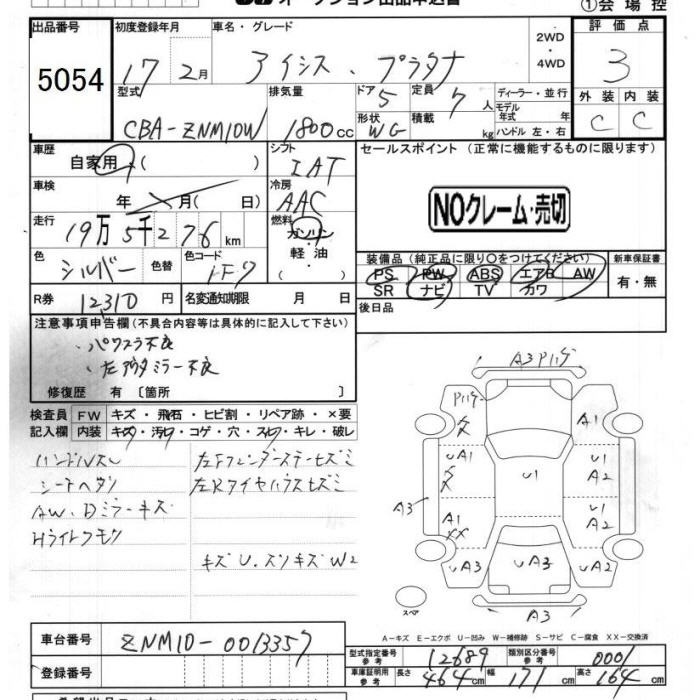 オークション出品申込書
①会場控
出品番号
5054
初度登録年月
17 2月
車名・グレード
アイシス、プラタナ
2WD
・
4WD
評価点
3
外装 内装
C C
型式
CBA-ZNM10W
排気量
1800cc
ドア 5
形状 WG
定員 7人
積載 kg
ディーラー・並行
モデル年式 年
ハンドル 左・右
車歴
自家用 ( )
シフト
IAT
車検
年 月( 日)
冷房
AAC
走行
19万5千276km
燃料
ガソリン
軽油
( )
色
シルバー
色替
色コード
1F7
R券
12310円
名変通知期限 月 日
セールスポイント (正常に機能するものに限ります)
NOクレーム・売切
装備品 (純正品に限り〇をつけてください)
PS PW ABS エアB AW
SR ナビ TV カワ
新車保証書
有・無
後日品
注意事項申告欄 (不具合内容等は具体的に記入して下さい)
・パワスラ不良
・左アウタミラー不良
修復歴 有 〔箇所 〕
検査員記入欄
FW キズ・飛石・ヒビ割・リペア跡・×要
内装 キズ・汚れ・コゲ・穴・スレ・キレ・破レ
ハンドルスレ
シートヘタリ
AW、Dミラーキズ
Hライトクモリ
左Fフェンダーステーヒズミ
左Rタイヤハウスヒズミ
キズU.スリキズW2
A3 Pハゲ
Pハゲ
XX
A1
UA1
U1
U1
A2
XX
A3
A1
XX
U1
A2
UA3
UA3
UA2
A3
スペア
A-キズ E-エクボ U-凹み W-補修跡 S-サビ C-腐食 XX-交換済
車台番号
ZNM10-0013357
登録番号
型式指定番号 参考
12689
類別区分番号 参考
0001
車庫証明用 参考
長さ 464cm
幅 171cm
高さ 164cm